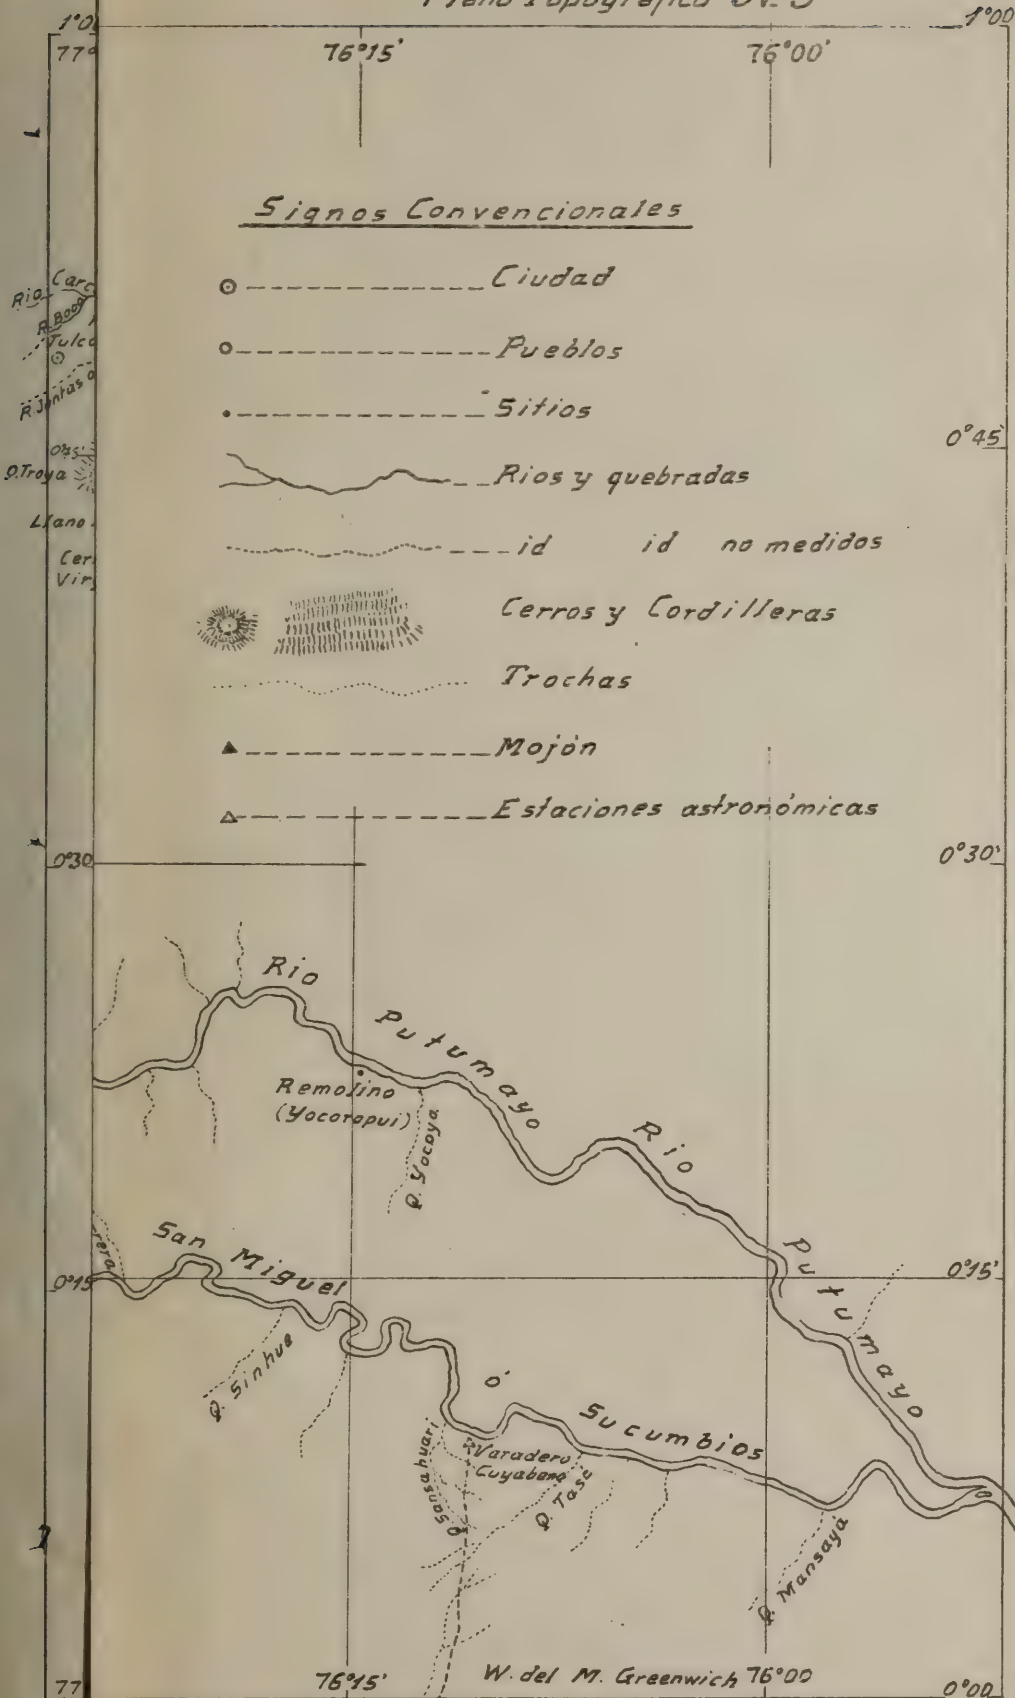 Plano Topográfico
1°00'
77°
76°15'
76°00'
Signos Convencionales
Ciudad
Pueblos
Sitios
Rios y quebradas
id id no medidos
Cerros y Cordilleras
Trochas
Mojón
Estaciones astronómicas
Rio Carc
R. Boog
Tulca
R. Juntas o
0°45'
Q. Troya
Llano
Cer
Virg
0°45'
0°30'
0°30'
Rio Putumayo
Remolino
(Yocoropui)
Q. Yocoya
Rio Putumayo
rrera
San Miguel ó Sucumbios
0°15'
0°15'
Q. Sinhue
Q. Sansahuari
Varadero
Cuyabeno
Q. Tase
Q. Mansayá
77
76°15'
W. del M. Greenwich
76°00'
0°00'